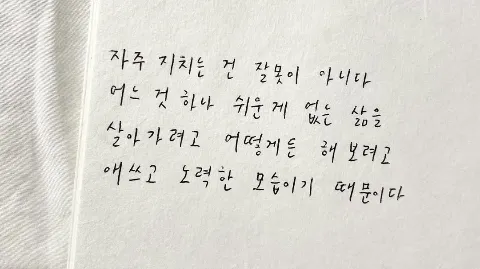 자주 지치는 건 잘못이 아니다
어느 것 하나 쉬운 게 없는 삶을
살아가려고 어떻게든 해보려고
애쓰고 노력한 모습이기 때문이다